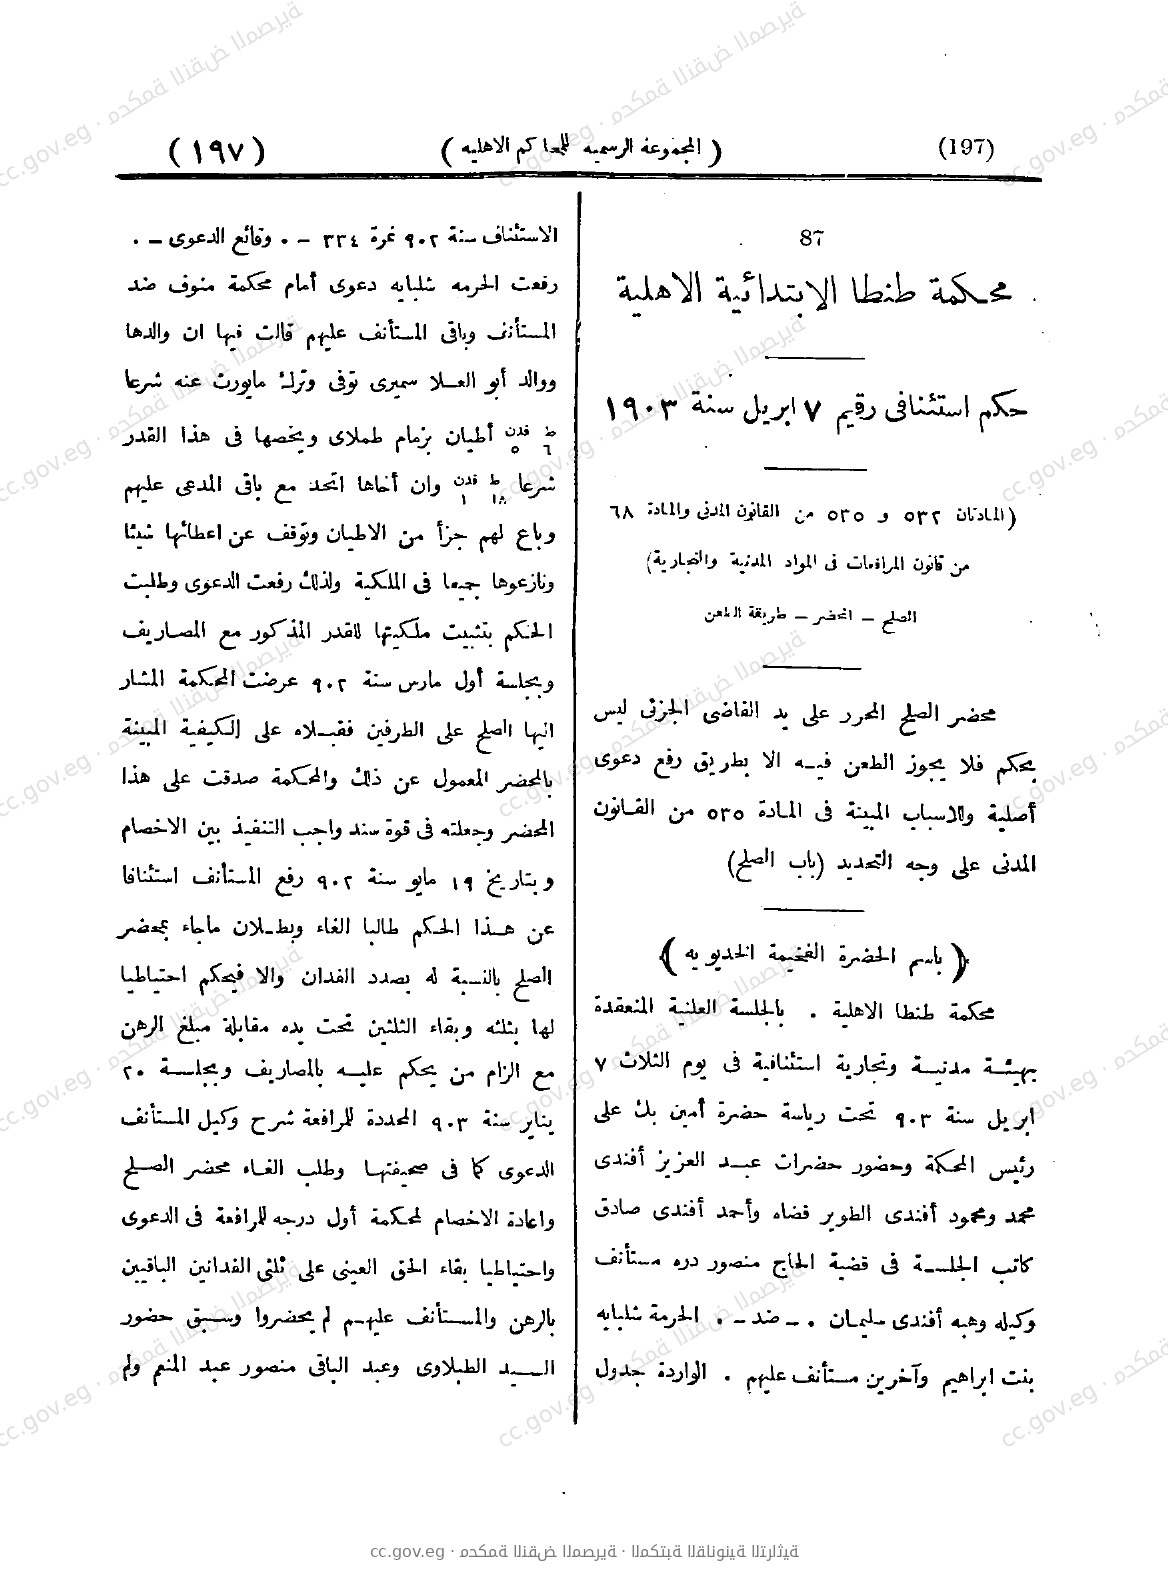 (197) ( المجموعة الرسميه للمحاكم الاهليه ) ( ١٩٧ )
87
محكمة طنطا الابتدائية الاهلية
حكم استئنافى رقيم ٧ ابريل سنة ١٩٠٣
(المادتان ٥٣٢ و ٥٣٥ من القانون المدنى والمادة ٦٨
من قانون المرافعات فى المواد المدنية والتجارية)
الصلح – المحضر – طريقة الطعن
محضر الصلح المحرر على يد القاضى الجزئى ليس
بحكم فلا يجوز الطعن فيه الا بطريق رفع دعوى
أصلية وللاسباب المبينة فى المادة ٥٣٥ من القانون
المدنى على وجه التحديد (باب الصلح)
( باسم الحضرة الفخيمة الخديويه )
محكمة طنطا الاهلية . بالجلسة العلنية المنعقدة
بهيئة مدنية وتجارية استئنافية فى يوم الثلاث ٧
ابريل سنة ٩٠٣ تحت رياسة حضرة أمين بك على
رئيس المحكمة وحضور حضرات عبد العزيز أفندى
محمد ومحمود أفندى الطوير قضاه وأحمد أفندى صادق
كاتب الجلسة فى قضية الحاج منصور دره مستأنف
وكيله وهبه أفندى سليمان . – ضد – . الحرمة شلبايه
بنت ابراهيم وآخرين مستأنف عليهم . الواردة جدول
الاستئناف سنة ٩٠٢ نمرة ٣٣٤ – . وقائع الدعوى – .
رفعت الحرمه شلبايه دعوى أمام محكمة منوف ضد
المستأنف وباقى المستأنف عليهم قالت فيها ان والدها
ووالد أبو العلا سميرى توفى وترك مايورث عنه شرعا
ط ٦ فدن ٥ أطيان بزمام طملاى ويخصها فى هذا القدر
شرعا ط ١٨ فدن ١ وان أخاها اتحد مع باقى المدعى عليهم
وباع لهم جزأ من الاطيان وتوقف عن اعطائها شيئا
ونازعوها جميعا فى الملكية ولذلك رفعت الدعوى وطلبت
الحكم بتثبيت ملكيتها للقدر المذكور مع المصاريف
وبجلسة أول مارس سنة ٩٠٢ عرضت المحكمة المشار
اليها الصلح على الطرفين فقبلاه على الكيفية المبينة
بالمحضر المعمول عن ذلك والمحكمة صدقت على هذا
المحضر وجعلته فى قوة سند واجب التنفيذ بين الاخصام
وبتاريخ ١٩ مايو سنة ٩٠٢ رفع المستأنف استئنافا
عن هذا الحكم طالبا الغاء وبطلان ماجاء بمحضر
الصلح بالنسبة له بصدد الفدان والا فيحكم احتياطيا
لها بثلثه وبقاء الثلثين تحت يده مقابلة مبلغ الرهن
مع الزام من يحكم عليه بالمصاريف وبجلسة ٢٠
يناير سنة ٩٠٣ المحددة للمرافعة شرح وكيل المستأنف
الدعوى كما فى صحيفتها وطلب الغاء محضر الصلح
واعادة الاخصام لمحكمة أول درجه للمرافعة فى الدعوى
واحتياطيا بقاء الحق العينى على ثلثى الفدانين الباقيين
بالرهن والمستأنف عليهم لم يحضروا وسبق حضور
السيد الطبلاوى وعبد الباقى منصور عبد المنعم ولم
cc.gov.eg · محكمة النقض المصرية · المكتبة القانونية التراثية